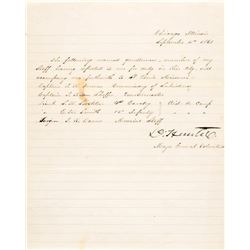 Chicago Illinois
September 6th 1861
The following named gentlemen, members of my
Staff having reported to me for duty in this city will
accompany me forthwith to St Louis Missouri
Captain Commissary of Subsistence
Captain Quartermaster
1st Cavalry Aid de Camp
Lieut Smith 15th Infantry " " "
Surgeon Medical Staff
D. Hunter
Major General Volunteers